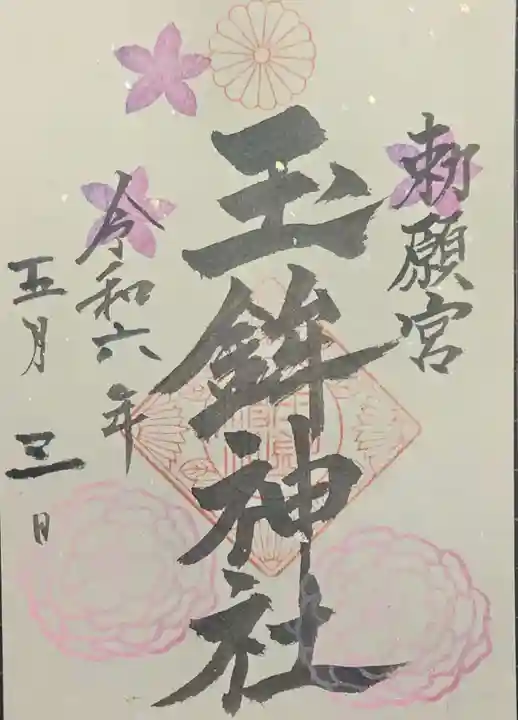 勅願宮
玉鉾神社
令和六年
五月三日